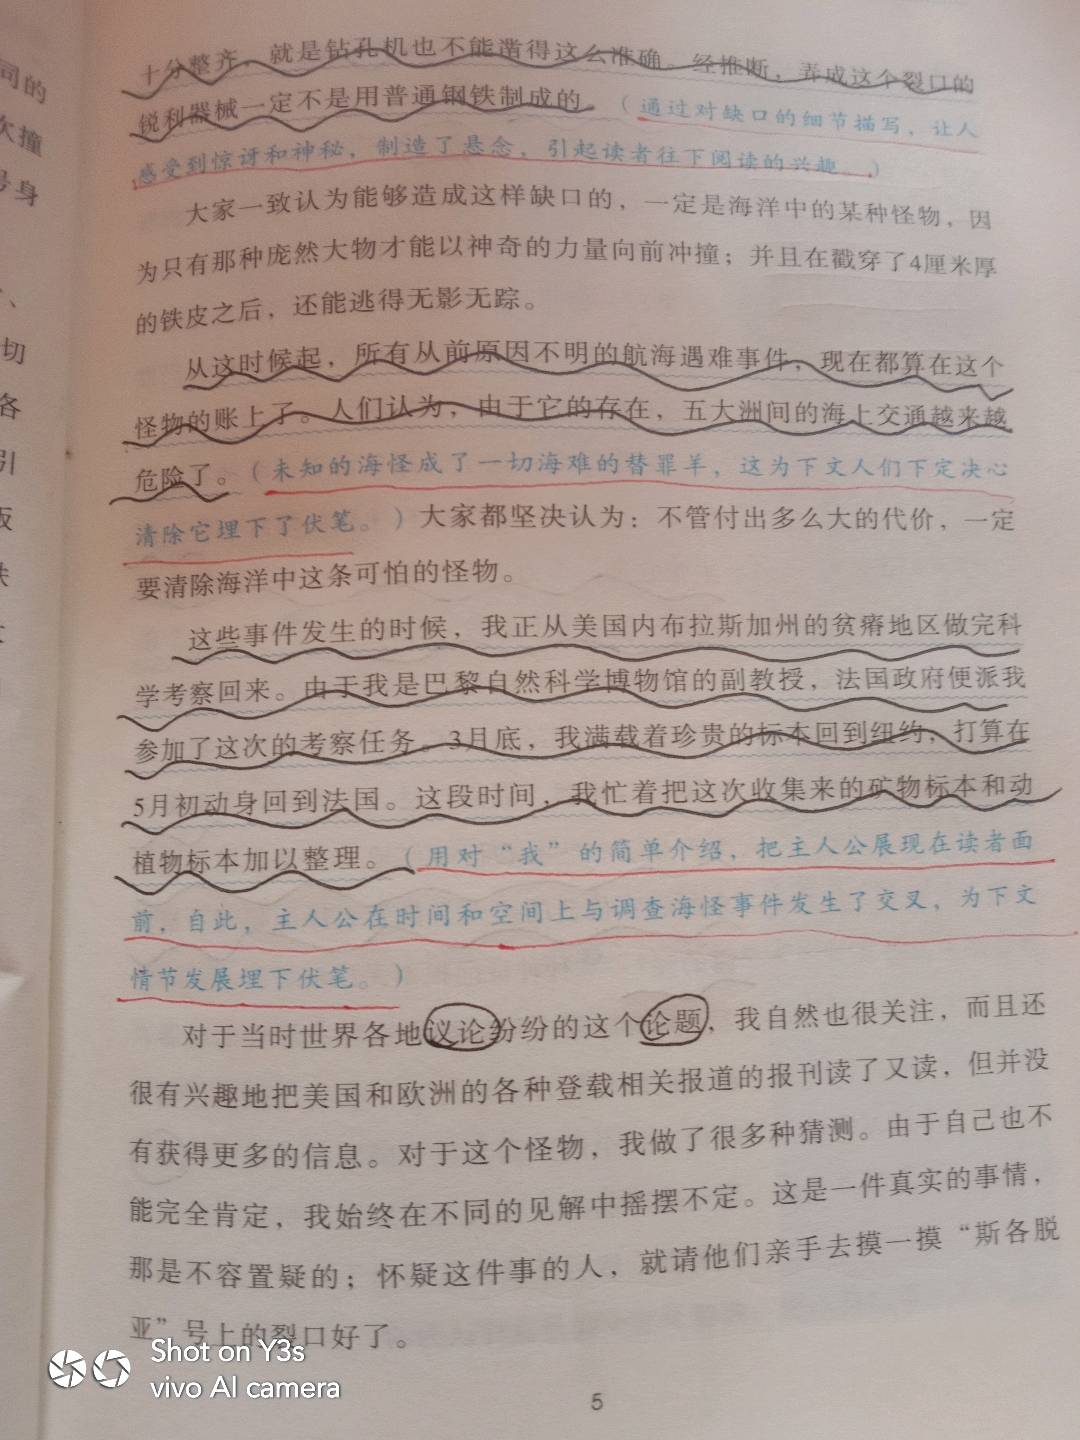 十分整齐，就是钻孔机也不能凿得这么准确。经推断，弄成这个裂口的
锐利器械一定不是用普通钢铁制成的。（通过对缺口的细节描写，让人
感受到惊讶和神秘，制造了悬念，引起读者往下阅读的兴趣。）
大家一致认为能够造成这样缺口的，一定是海洋中的某种怪物，因
为只有那种庞然大物才能以神奇的力量向前冲撞；并且在戳穿了4厘米厚
的铁皮之后，还能逃得无影无踪。
从这时候起，所有从前原因不明的航海遇难事件，现在都算在这个
怪物的账上了。人们认为，由于它的存在，五大洲间的海上交通越来越
危险了。（未知的海怪成了一切海难的替罪羊，这为下文人们下定决心
清除它埋下了伏笔。）大家都坚决认为：不管付出多么大的代价，一定
要清除海洋中这条可怕的怪物。
这些事件发生的时候，我正从美国内布拉斯加州的贫瘠地区做完科
学考察回来。由于我是巴黎自然科学博物馆的副教授，法国政府便派我
参加了这次的考察任务。3月底，我满载着珍贵的标本回到纽约，打算在
5月初动身回到法国。这段时间，我忙着把这次收集来的矿物标本和动
植物标本加以整理。（用对“我”的简单介绍，把主人公展现在读者面
前，自此，主人公在时间和空间上与调查海怪事件发生了交叉，为下文
情节发展埋下伏笔。）
对于当时世界各地议论纷纷的这个论题，我自然也很关注，而且还
很有兴趣地把美国和欧洲的各种登载相关报道的报刊读了又读，但并没
有获得更多的信息。对于这个怪物，我做了很多种猜测。由于自己也不
能完全肯定，我始终在不同的见解中摇摆不定。这是一件真实的事情，
那是不容置疑的；怀疑这件事的人，就请他们亲手去摸一摸“斯各脱
亚”号上的裂口好了。
5
同的
次撞
号身
、
切
各
引
Shot on Y3s
vivo AI camera